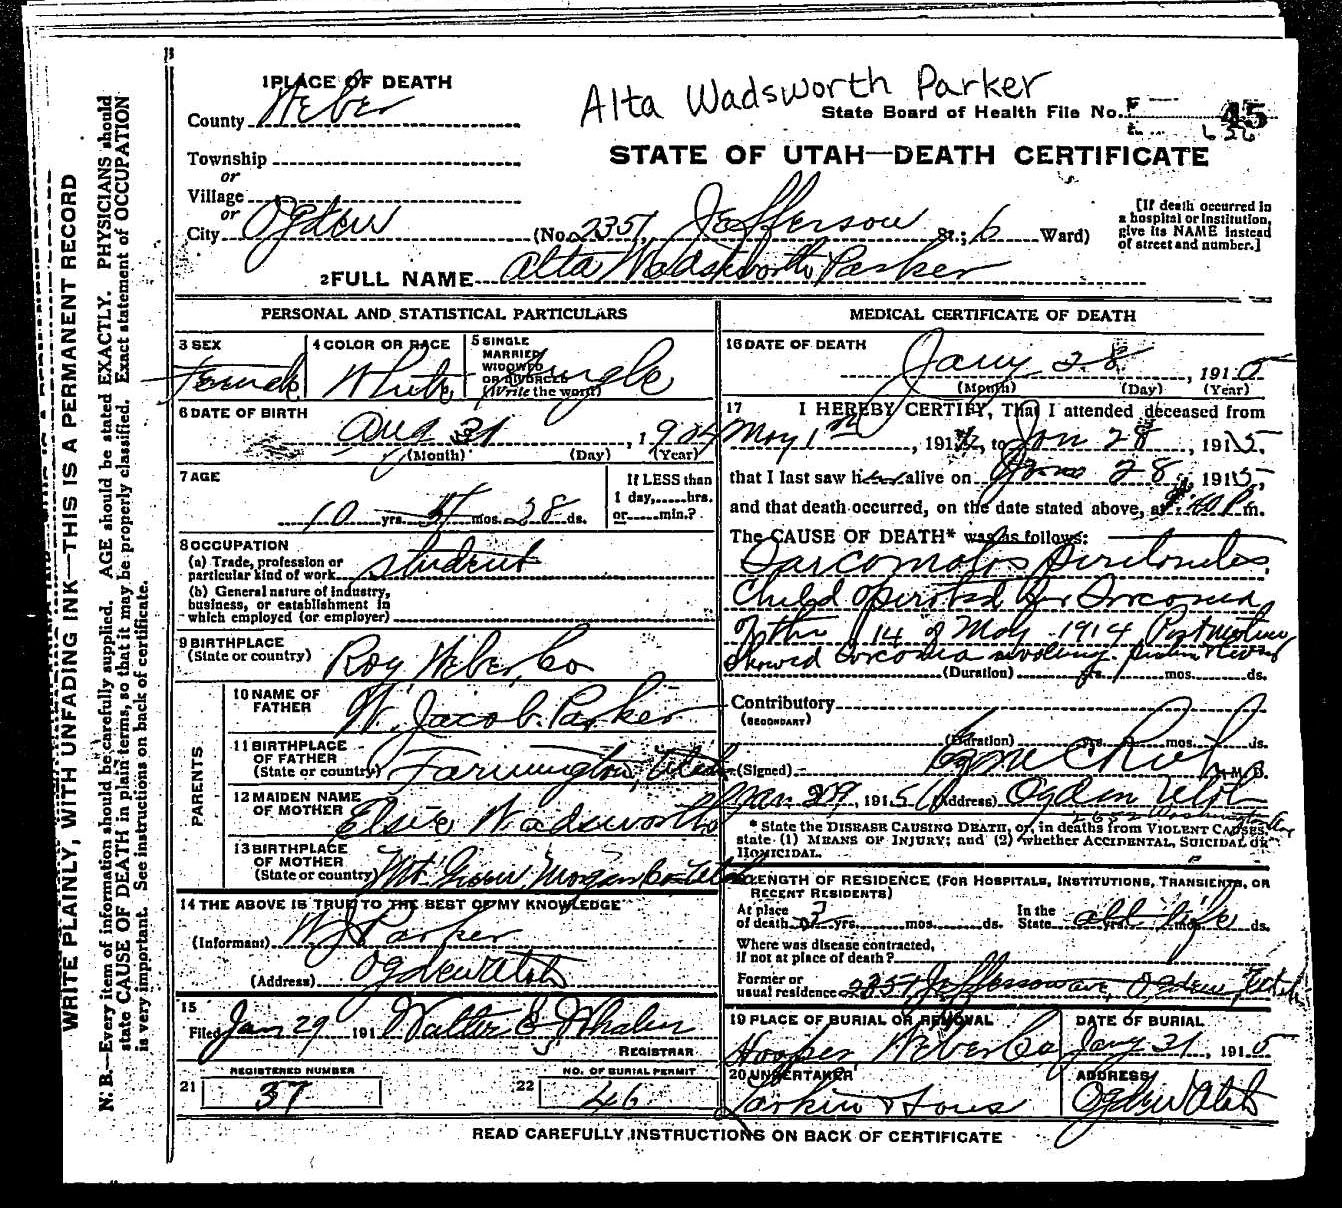 Alta Wadsworth Parker
1 PLACE OF DEATH
County Weber
State Board of Health File No. 45
Township
or
STATE OF UTAH—DEATH CERTIFICATE
Village
or
City Ogden (No. 2351 Jefferson St.; 6 Ward)
[If death occurred in
a hospital or institution,
give its NAME instead
of street and number.]
2 FULL NAME Alta Wadsworth Parker
PERSONAL AND STATISTICAL PARTICULARS
3 SEX
Female
4 COLOR OR RACE
White
5 SINGLE
MARRIED
WIDOWED
OR DIVORCED
(Write the word)
Single
6 DATE OF BIRTH
Aug 31, 1904
(Month) (Day) (Year)
7 AGE
10 yrs. mos. 28 ds.
If LESS than
1 day, hrs.
or min.?
8 OCCUPATION
(a) Trade, profession or
particular kind of work student
(b) General nature of industry,
business, or establishment in
which employed (or employer)
9 BIRTHPLACE
(State or country) Roy Weber Co
PARENTS
10 NAME OF
FATHER W. Jacob Parker
11 BIRTHPLACE
OF FATHER
(State or country) Farmington, Utah
12 MAIDEN NAME
OF MOTHER Elsie Wadsworth
13 BIRTHPLACE
OF MOTHER
(State or country) Mt. Green Morgan Co Utah
14 THE ABOVE IS TRUE TO THE BEST OF MY KNOWLEDGE
(Informant) W J Parker
(Address) Ogden Utah
15
Filed Jan 29 191 Walter E. Whalen
REGISTRAR
21 REGISTERED NUMBER
37
22 NO. OF BURIAL PERMIT
46
MEDICAL CERTIFICATE OF DEATH
16 DATE OF DEATH
Jany 28, 1915
(Month) (Day) (Year)
17 I HEREBY CERTIFY, That I attended deceased from
May 1st, 191 , to Jan 28, 1915,
that I last saw her alive on Jan 28, 1915,
and that death occurred, on the date stated above, at P. m.
The CAUSE OF DEATH* was as follows:
Sarcomatos Peritonites
Child operated for Sarcoma
14 of May 1914 Postmortem
Showed sarcoma involving
(Duration) yrs. mos. ds.
Contributory
(SECONDARY)
(Duration) yrs. mos. ds.
(Signed) M. D.
Jan 29, 1915 (Address) Ogden Utah
* State the DISEASE CAUSING DEATH, or, in deaths from VIOLENT CAUSES,
state (1) MEANS OF INJURY; and (2) whether ACCIDENTAL, SUICIDAL OR
HOMICIDAL.
LENGTH OF RESIDENCE (FOR HOSPITALS, INSTITUTIONS, TRANSIENTS, OR
RECENT RESIDENTS)
At place
of death yrs. mos. ds.
In the
State all life yrs. mos. ds.
Where was disease contracted,
if not at place of death?
Former or
usual residence 2351 Jefferson ave, Ogden, Utah
19 PLACE OF BURIAL OR REMOVAL
Hooper, Weber Co
DATE OF BURIAL
Jany 31, 1915
20 UNDERTAKER
Larkin & Sons
ADDRESS
Ogden Utah
READ CAREFULLY INSTRUCTIONS ON BACK OF CERTIFICATE
WRITE PLAINLY, WITH UNFADING INK—THIS IS A PERMANENT RECORD
N. B.—Every item of information should be carefully supplied. AGE should be stated EXACTLY. PHYSICIANS should
state CAUSE OF DEATH in plain terms, so that it may be properly classified. Exact statement of OCCUPATION
is very important. See instructions on back of certificate.